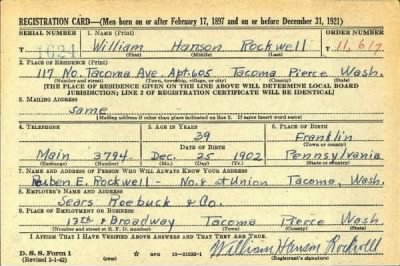 REGISTRATION CARD—(Men born on or after February 17, 1897 and on or before December 31, 1921)
SERIAL NUMBER 1. NAME (Print) ORDER NUMBER
1621 William Hanson Rockwell 11,617
(First) (Middle) (Last)
2. PLACE OF RESIDENCE (Print)
117 No. Tacoma Ave. Apt. 605 Tacoma Pierce Wash.
(Number and street) (Town, township, village, or city) (County) (State)
[THE PLACE OF RESIDENCE GIVEN ON THE LINE ABOVE WILL DETERMINE LOCAL BOARD
JURISDICTION; LINE 2 OF REGISTRATION CERTIFICATE WILL BE IDENTICAL]
3. MAILING ADDRESS
same
[Mailing address if other than place indicated on line 2. If same insert word same]
4. TELEPHONE 5. AGE IN YEARS 6. PLACE OF BIRTH
39 Franklin
DATE OF BIRTH (Town or county)
Main 3794 Dec. 25 1902 Pennsylvania
(Exchange) (Number) (Mo.) (Day) (Yr.) (State or country)
7. NAME AND ADDRESS OF PERSON WHO WILL ALWAYS KNOW YOUR ADDRESS
Ruben E. Rockwell - No. 8 at Union Tacoma, Wash.
8. EMPLOYER'S NAME AND ADDRESS
Sears Roebuck & Co.
9. PLACE OF EMPLOYMENT OR BUSINESS
13th & Broadway Tacoma Pierce Wash
(Number and street or R. F. D. number) (Town) (County) (State)
I AFFIRM THAT I HAVE VERIFIED ABOVE ANSWERS AND THAT THEY ARE TRUE.
D. S. S. Form 1 GPO William Hanson Rockwell
(Revised 1-1-42) (Registrant's signature)